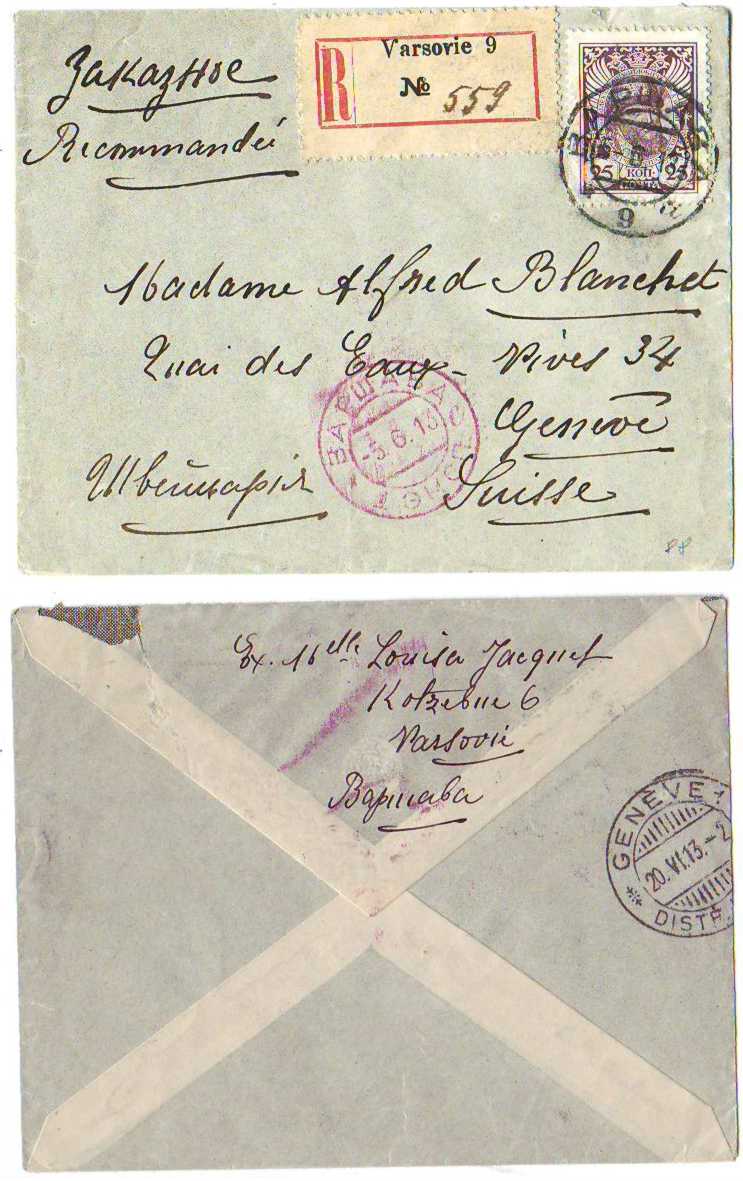 Заказное
Recommandée
R
Varsovie 9
№ 559
25 25
КОП
ПОЧТА
9
Madame Alfred Blanchet
Quai des Eaux-Vives 34
Genève
Швейцарія Suisse
ВАРШАВА
-3.6.13
88
Ex. Melle Louisa Jacquet
Kotzebue 6
Varsovie
Варшава
GENÈVE 1
20.VI.13.-2
DISTR.